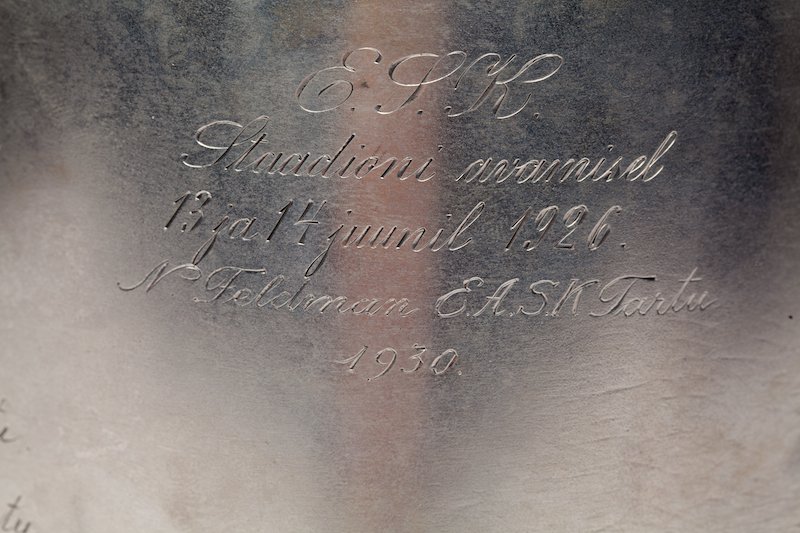 E.S.K.
Staadioni avamisel
13 ja 14 juunil 1926.
N. Feldman E.A.S.K Tartu
1930.
tu